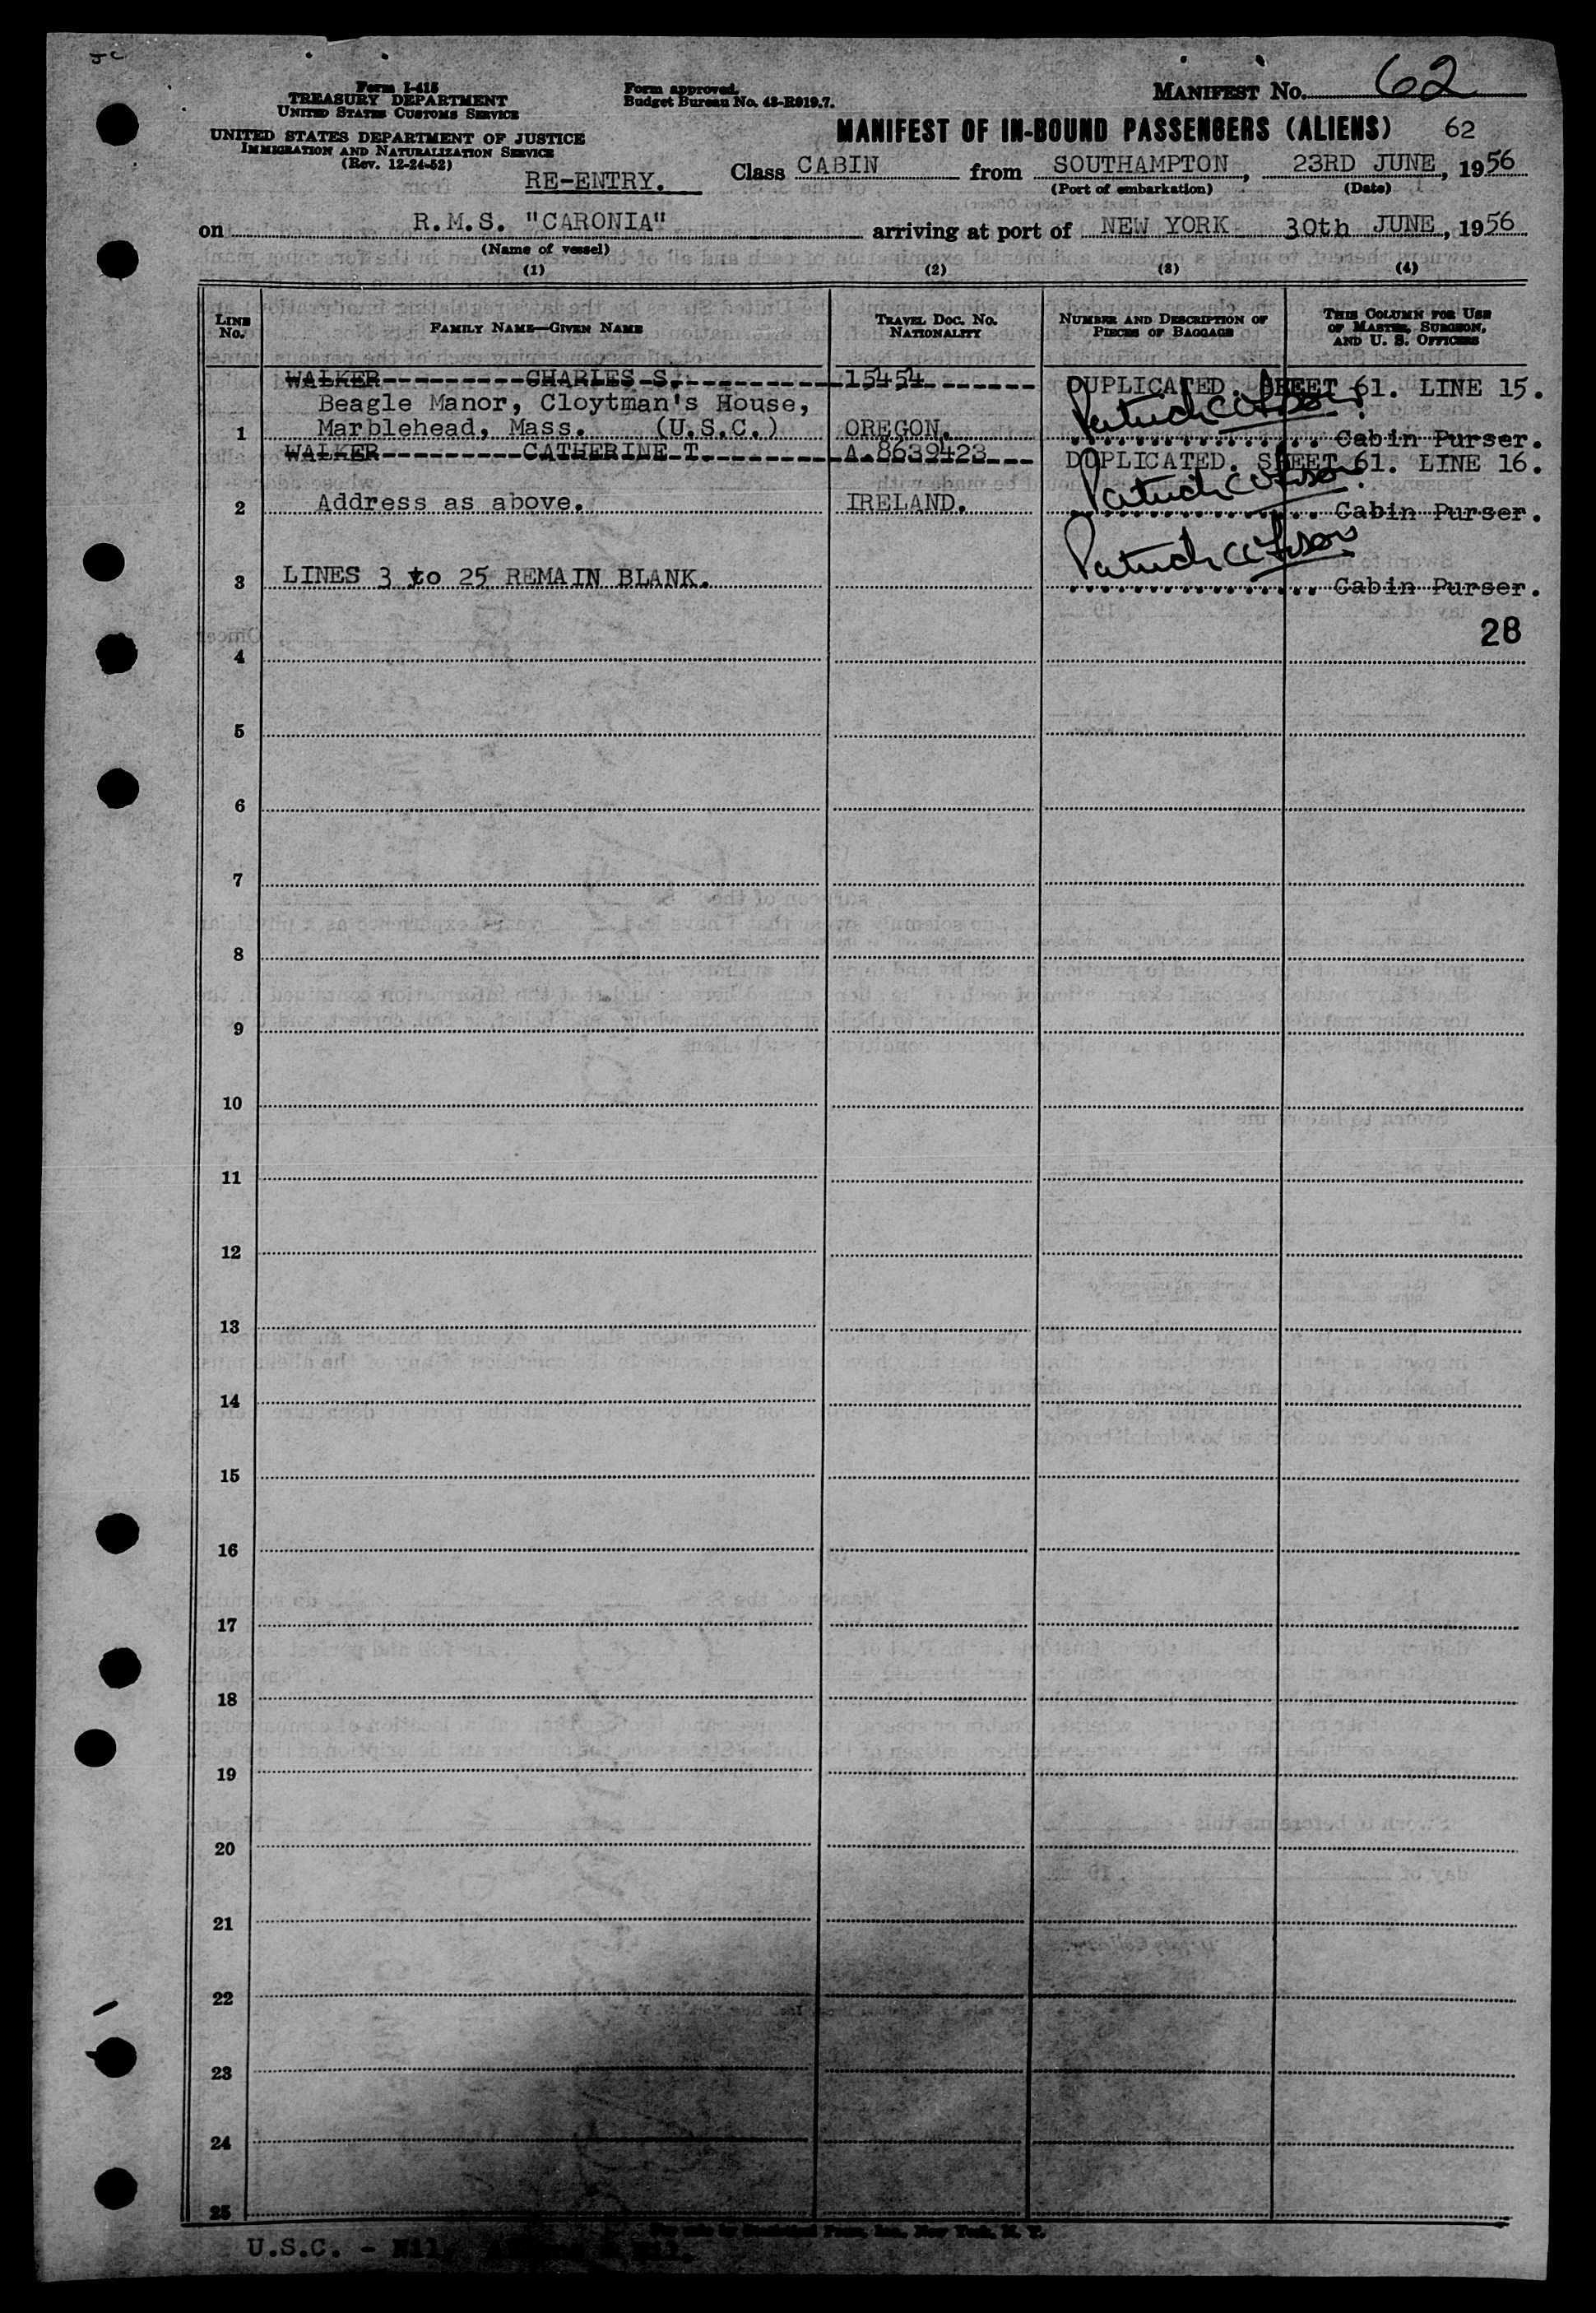 JC
Form I-415
TREASURY DEPARTMENT
UNITED STATES CUSTOMS SERVICE
UNITED STATES DEPARTMENT OF JUSTICE
IMMIGRATION AND NATURALIZATION SERVICE
(Rev. 12-24-52)
Form approved.
Budget Bureau No. 43-R019.7.
MANIFEST No. 62
MANIFEST OF IN-BOUND PASSENGERS (ALIENS) 62
RE-ENTRY.
Class CABIN from SOUTHAMPTON, 23RD JUNE, 1956
(Port of embarkation) (Date)
on R.M.S. "CARONIA" arriving at port of NEW YORK 30th JUNE, 1956
(Name of vessel)
(1) (2) (3) (4)
LINE No.
FAMILY NAME—GIVEN NAME
TRAVEL DOC. NO. NATIONALITY
NUMBER AND DESCRIPTION OF PIECES OF BAGGAGE
THIS COLUMN FOR USE OF MASTER, SURGEON, AND U. S. OFFICERS
WALKER---------CHARLES S.----------15454------- DUPLICATED. SHEET 61. LINE 15.
Beagle Manor, Cloytman's House,
1 Marblehead, Mass. (U.S.C.) OREGON. Cabin Purser.
WALKER---------CATHERINE T---------A-8639423--- DUPLICATED. SHEET 61. LINE 16.
2 Address as above. IRELAND. Cabin Purser.
3 LINES 3 to 25 REMAIN BLANK. Cabin Purser.
28
4
5
6
7
8
9
10
11
12
13
14
15
16
17
18
19
20
21
22
23
24
25
U.S.C. - Nil.